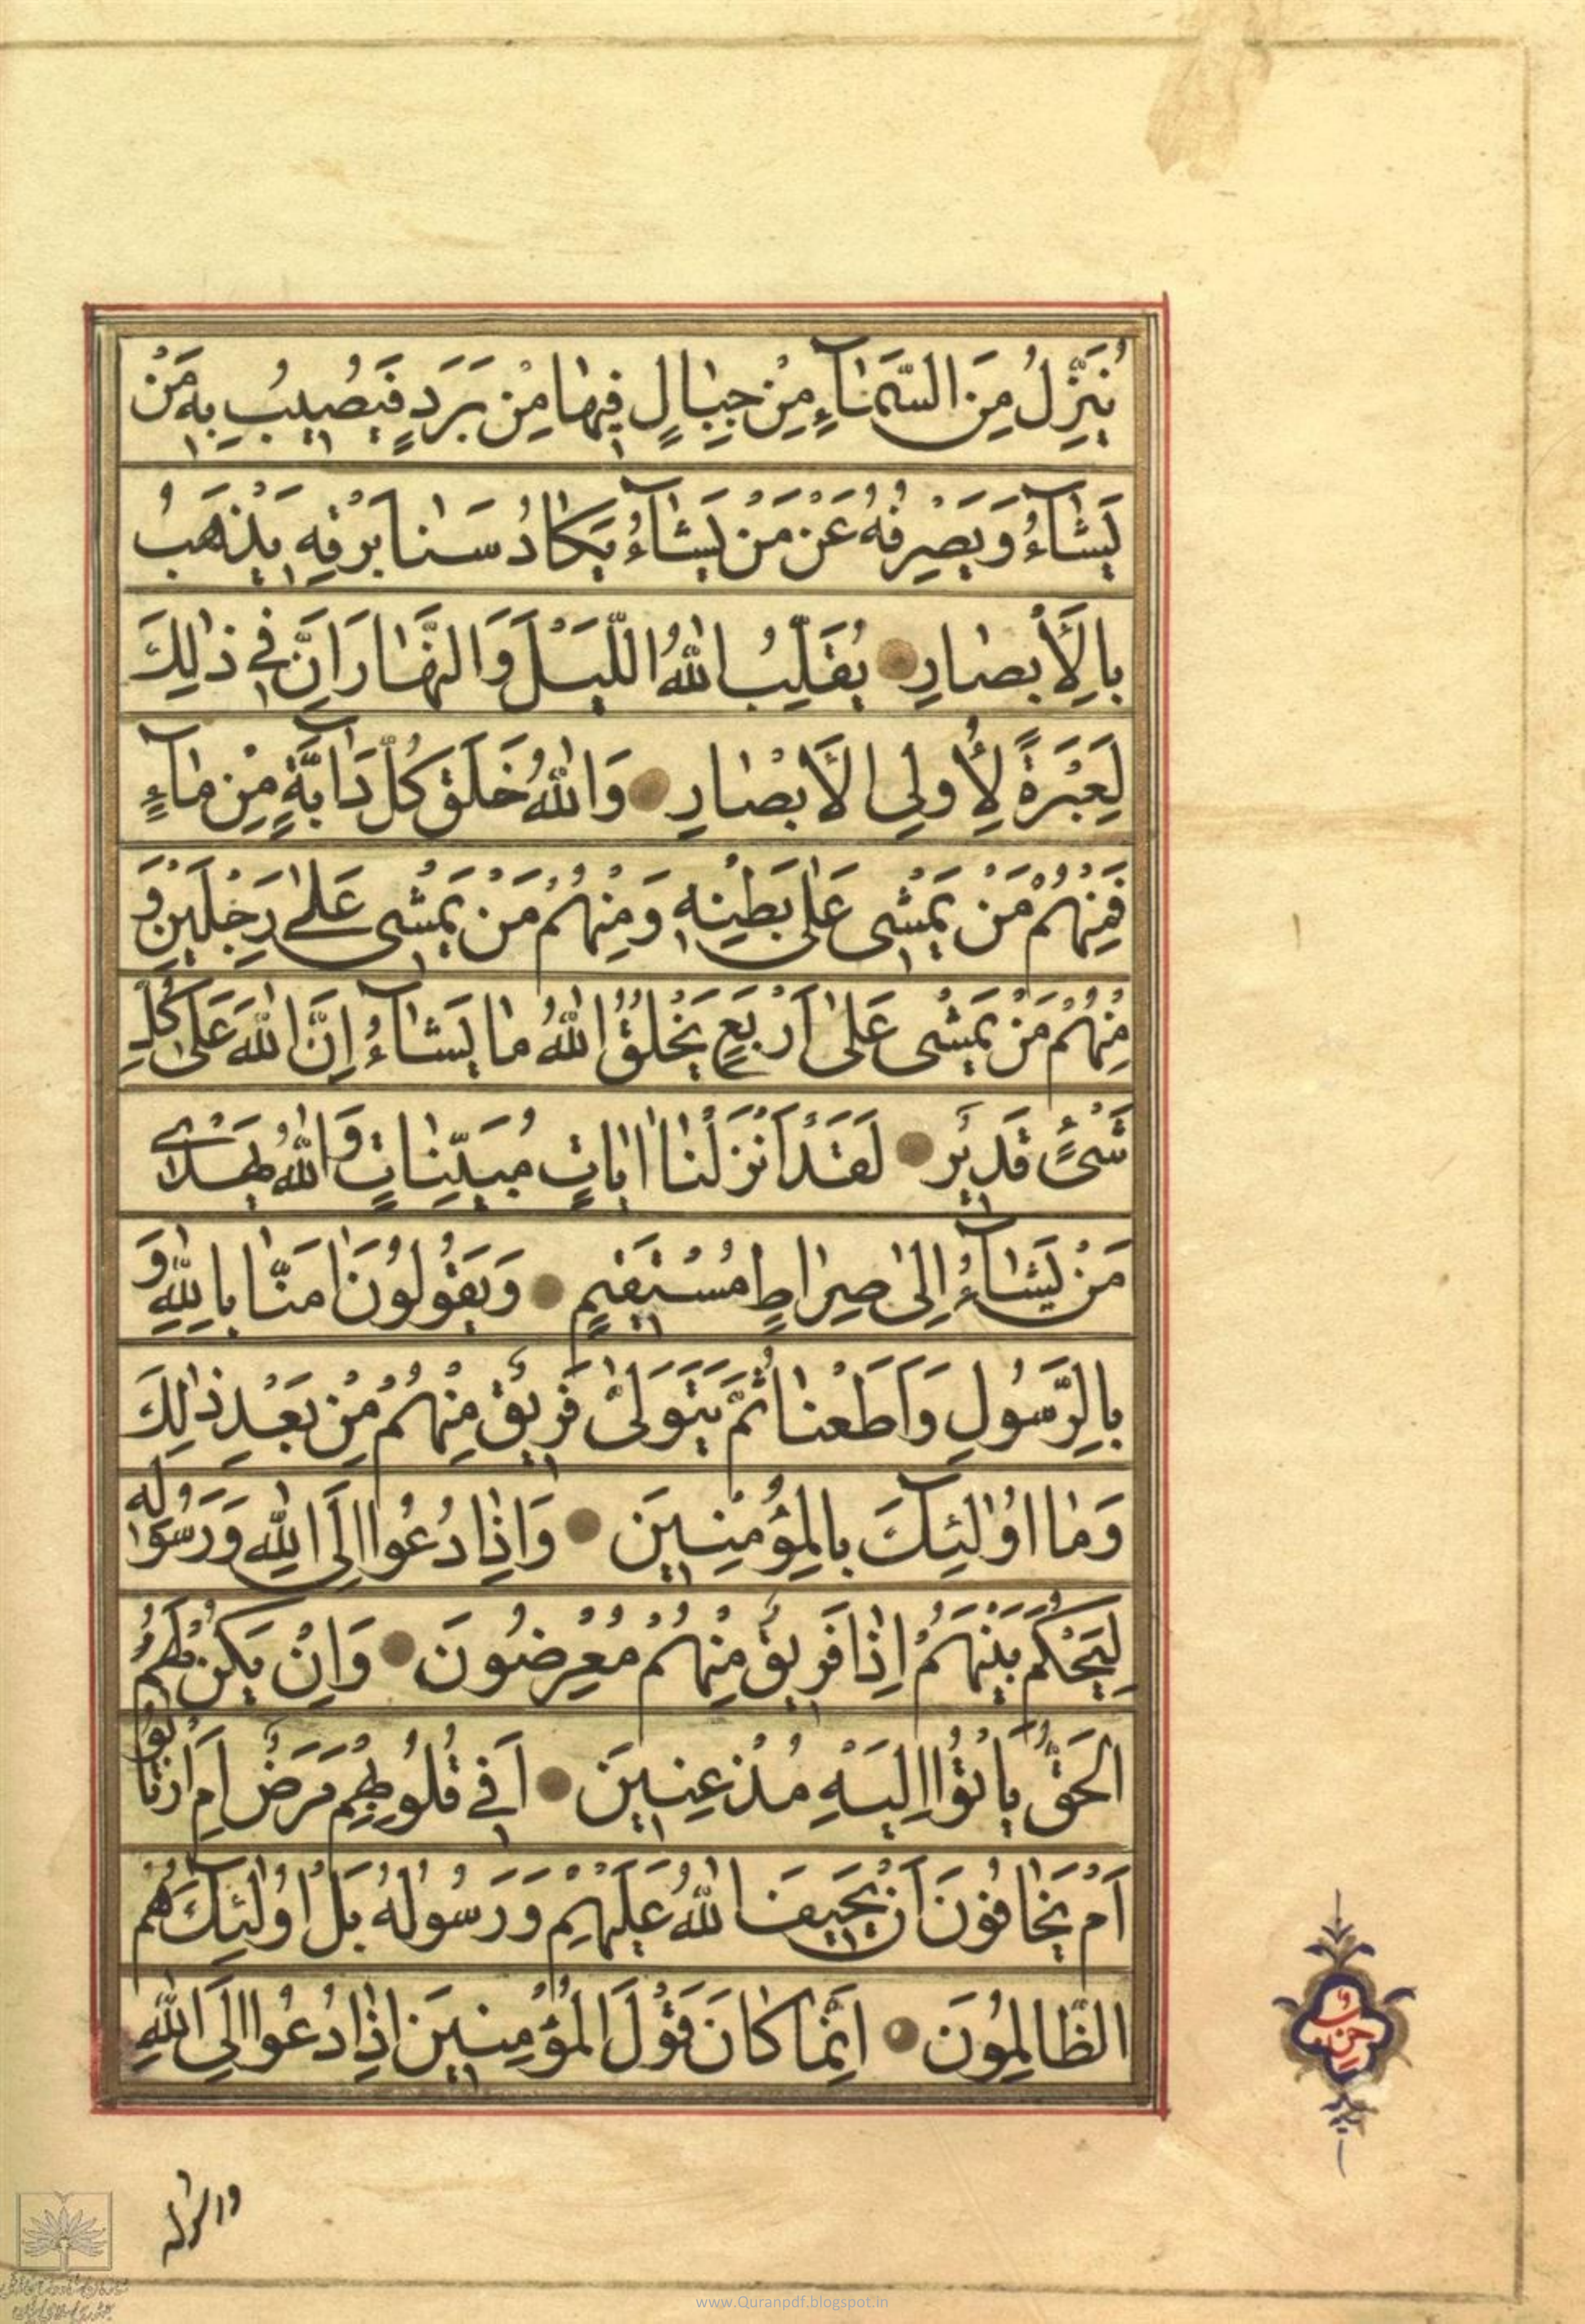 يُنَزِّلُ مِنَ السَّمٰاۤءِ مِنْ جِبٰالٍ فِيهٰا مِنْ بَرَدٍ فَيُصِيبُ بِهِ مَنْ
يَشٰاۤءُ وَيَصْرِفُهُ عَنْ مَنْ يَشٰاۤءُ يَكٰادُ سَنٰا بَرْقِهِ يَذْهَبُ
بِالْأَبصٰارِ يُقَلِّبُ اللّٰهُ اللَّيْلَ وَالنَّهٰارَ اِنَّ فِي ذٰلِكَ
لَعِبْرَةً لِأُولِي الْأَبْصٰارِ وَاللّٰهُ خَلَقَ كُلَّ دٰاۤبَّةٍ مِنْ مٰاۤءٍ
فَمِنْهُمْ مَنْ يَمْشِي عَلٰى بَطْنِهِ وَمِنْهُمْ مَنْ يَمْشِي عَلٰى رِجْلَيْنِ وَ
مِنْهُمْ مَنْ يَمْشِي عَلٰى اَرْبَعٍ يَخْلُقُ اللّٰهُ مٰا يَشٰاۤءُ اِنَّ اللّٰهَ عَلٰى كُلِّ
شَيْءٍ قَدِيرٌ لَقَدْ اَنْزَلْنٰا اٰيٰاتٍ مُبَيِّنٰاتٍ وَاللّٰهُ يَهْدِي
مَنْ يَشٰاۤءُ اِلىٰ صِرٰاطٍ مُسْتَقِيمٍ وَيَقُولُونَ اٰمَنّٰا بِاللّٰهِ وَ
بِالرَّسُولِ وَاَطَعْنٰا ثُمَّ يَتَوَلّٰى فَرِيقٌ مِنْهُمْ مِنْ بَعْدِ ذٰلِكَ
وَمٰا اُولٰۤئِكَ بِالْمُؤْمِنِينَ وَاِذٰا دُعُوا اِلَى اللّٰهِ وَرَسُولِهِ
لِيَحْكُمَ بَيْنَهُمْ اِذٰا فَرِيقٌ مِنْهُمْ مُعْرِضُونَ وَاِنْ يَكُنْ لَهُمُ
الْحَقُّ يَأْتُوا اِلَيْهِ مُذْعِنِينَ اَفِي قُلُوبِهِمْ مَرَضٌ اَمِ ارْتٰابُوا
اَمْ يَخٰافُونَ اَنْ يَحِيفَ اللّٰهُ عَلَيْهِمْ وَرَسُولُهُ بَلْ اُولٰۤئِكَ هُمُ
الظّٰالِمُونَ اِنَّمٰا كٰانَ قَوْلَ الْمُؤْمِنِينَ اِذٰا دُعُوا اِلَى اللّٰهِ
حزب
ورسوله
www.Quranpdf.blogspot.in